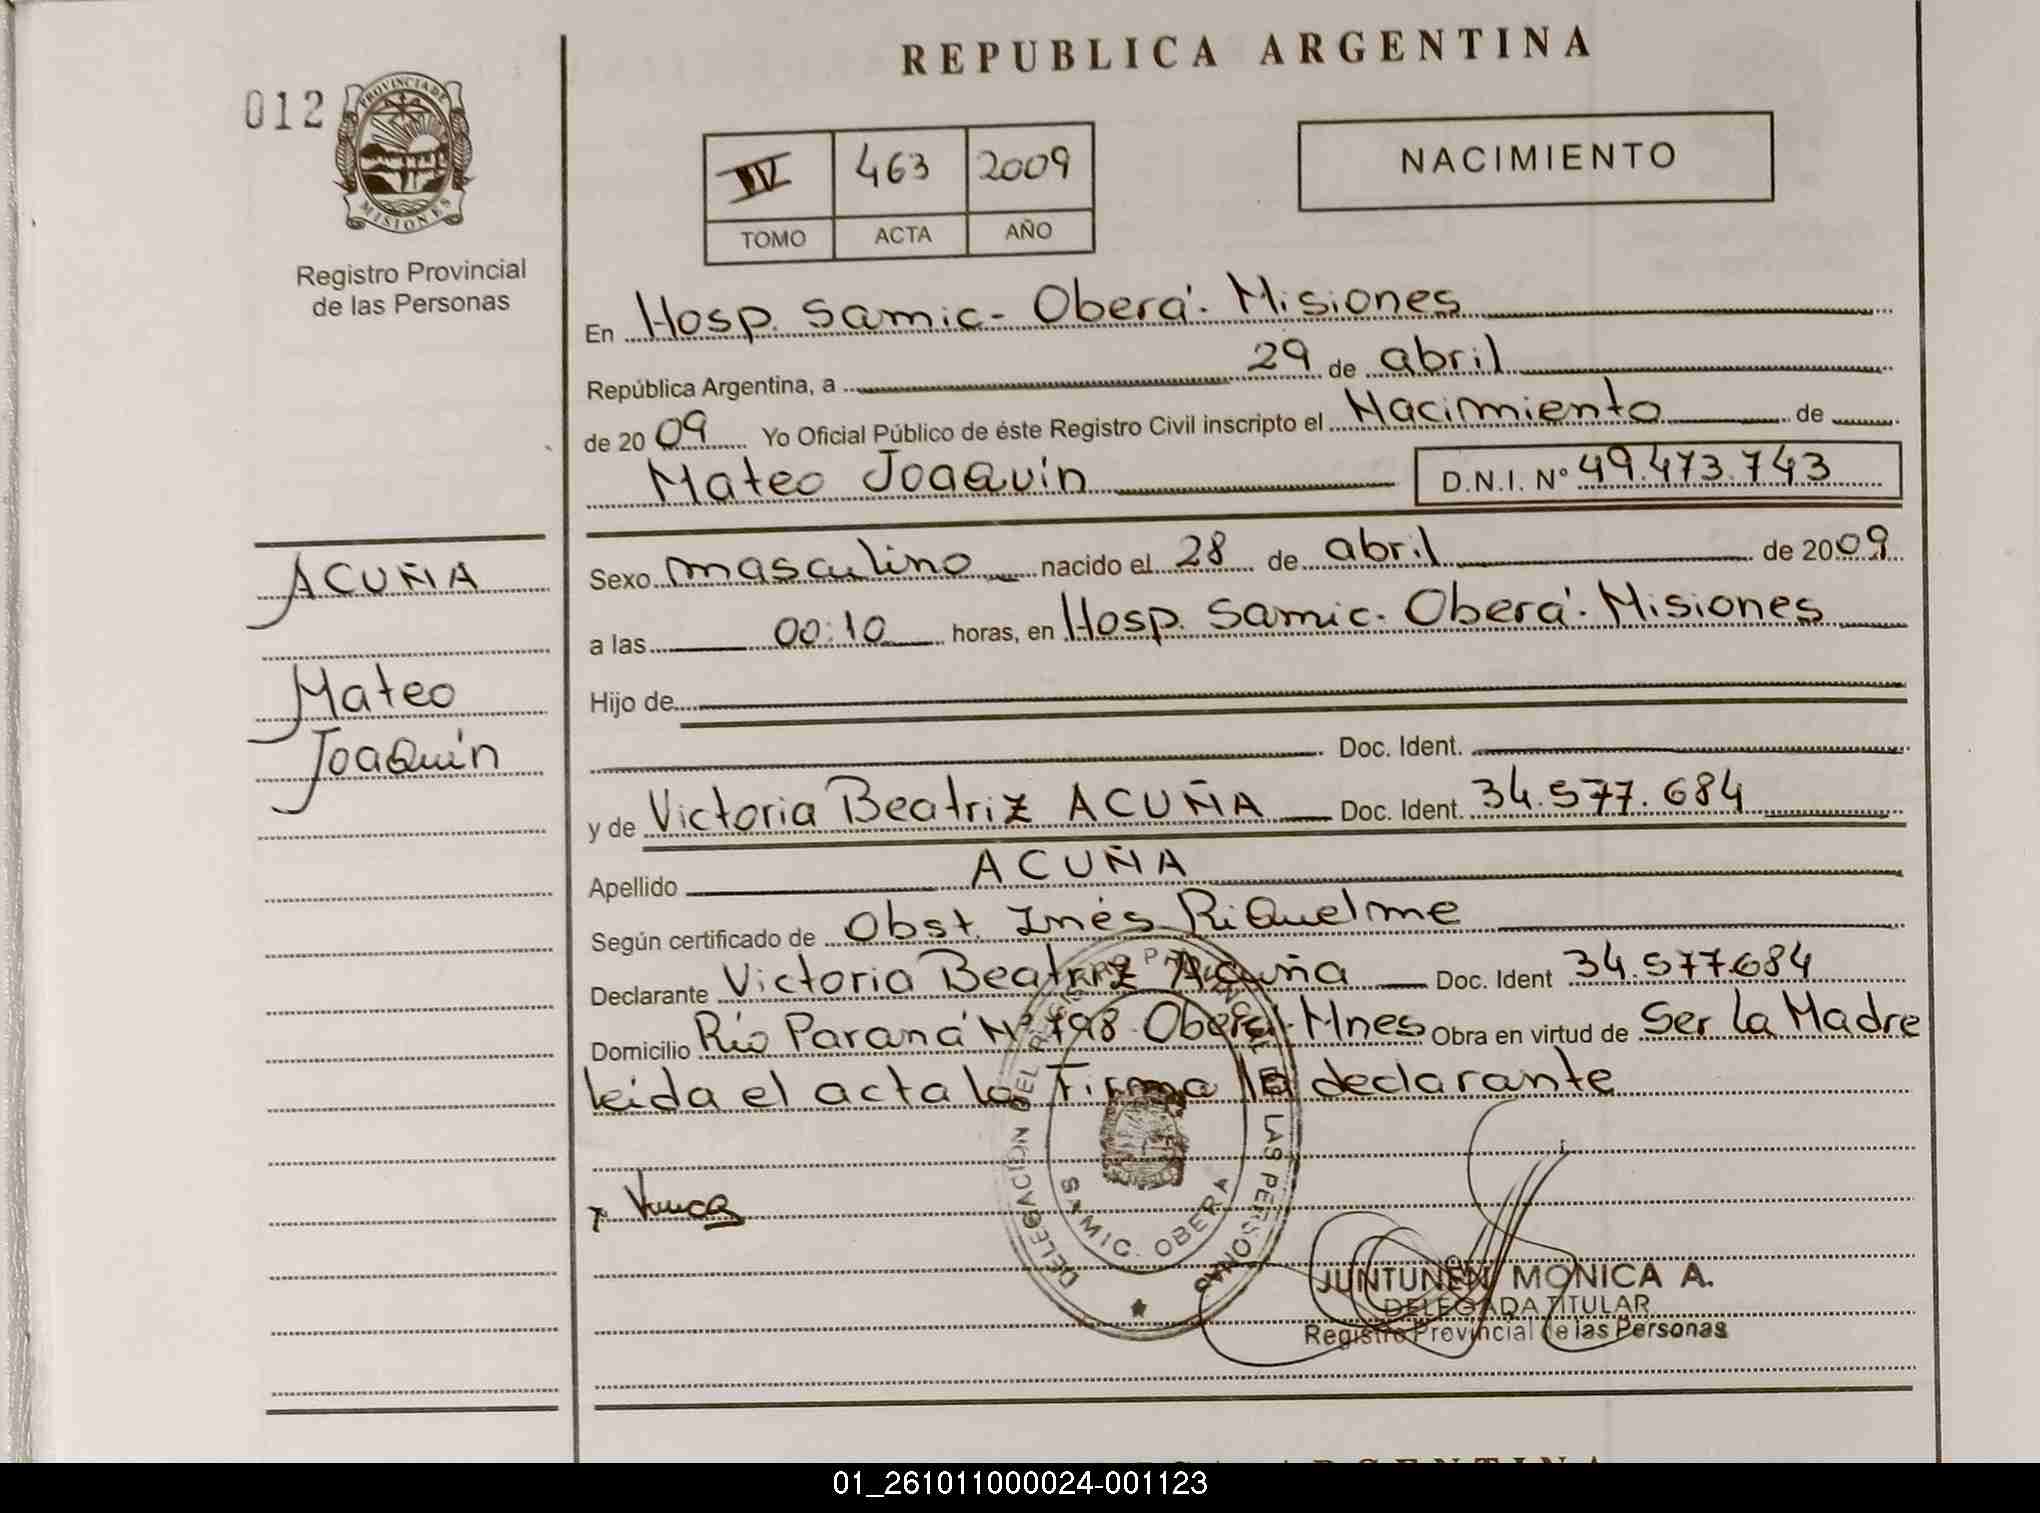 REPUBLICA ARGENTINA
012
PROVINCIA DE
MISIONES
Registro Provincial
de las Personas
IV 463 2009
TOMO ACTA AÑO
NACIMIENTO
En Hosp. Samic - Oberá. Misiones
República Argentina, a 29 de abril
de 2009 Yo Oficial Público de éste Registro Civil inscripto el Nacimiento de
Mateo Joaquín D.N.I. Nº 49.473.743
Sexo masculino nacido el 28 de abril de 2009
a las 00:10 horas, en Hosp. Samic. Oberá. Misiones
Hijo de
Doc. Ident.
y de Victoria Beatriz ACUÑA Doc. Ident. 34.577.684
Apellido ACUÑA
Según certificado de Obst. Inés Riquelme
Declarante Victoria Beatriz Acuña Doc. Ident 34.577.684
Domicilio Río Paraná Nº 798 Oberá - Mnes Obra en virtud de Ser la Madre
leida el acta la Firma la declarante
ACUÑA
Mateo
Joaquín
DELEGACION DEL REGISTRO PROVINCIAL DE LAS PERSONAS
SAMIC. OBERA
JUNTUNEN MONICA A.
DELEGADA TITULAR
Registro Provincial de las Personas
REPUBLICA ARGENTINA
01_261011000024-001123